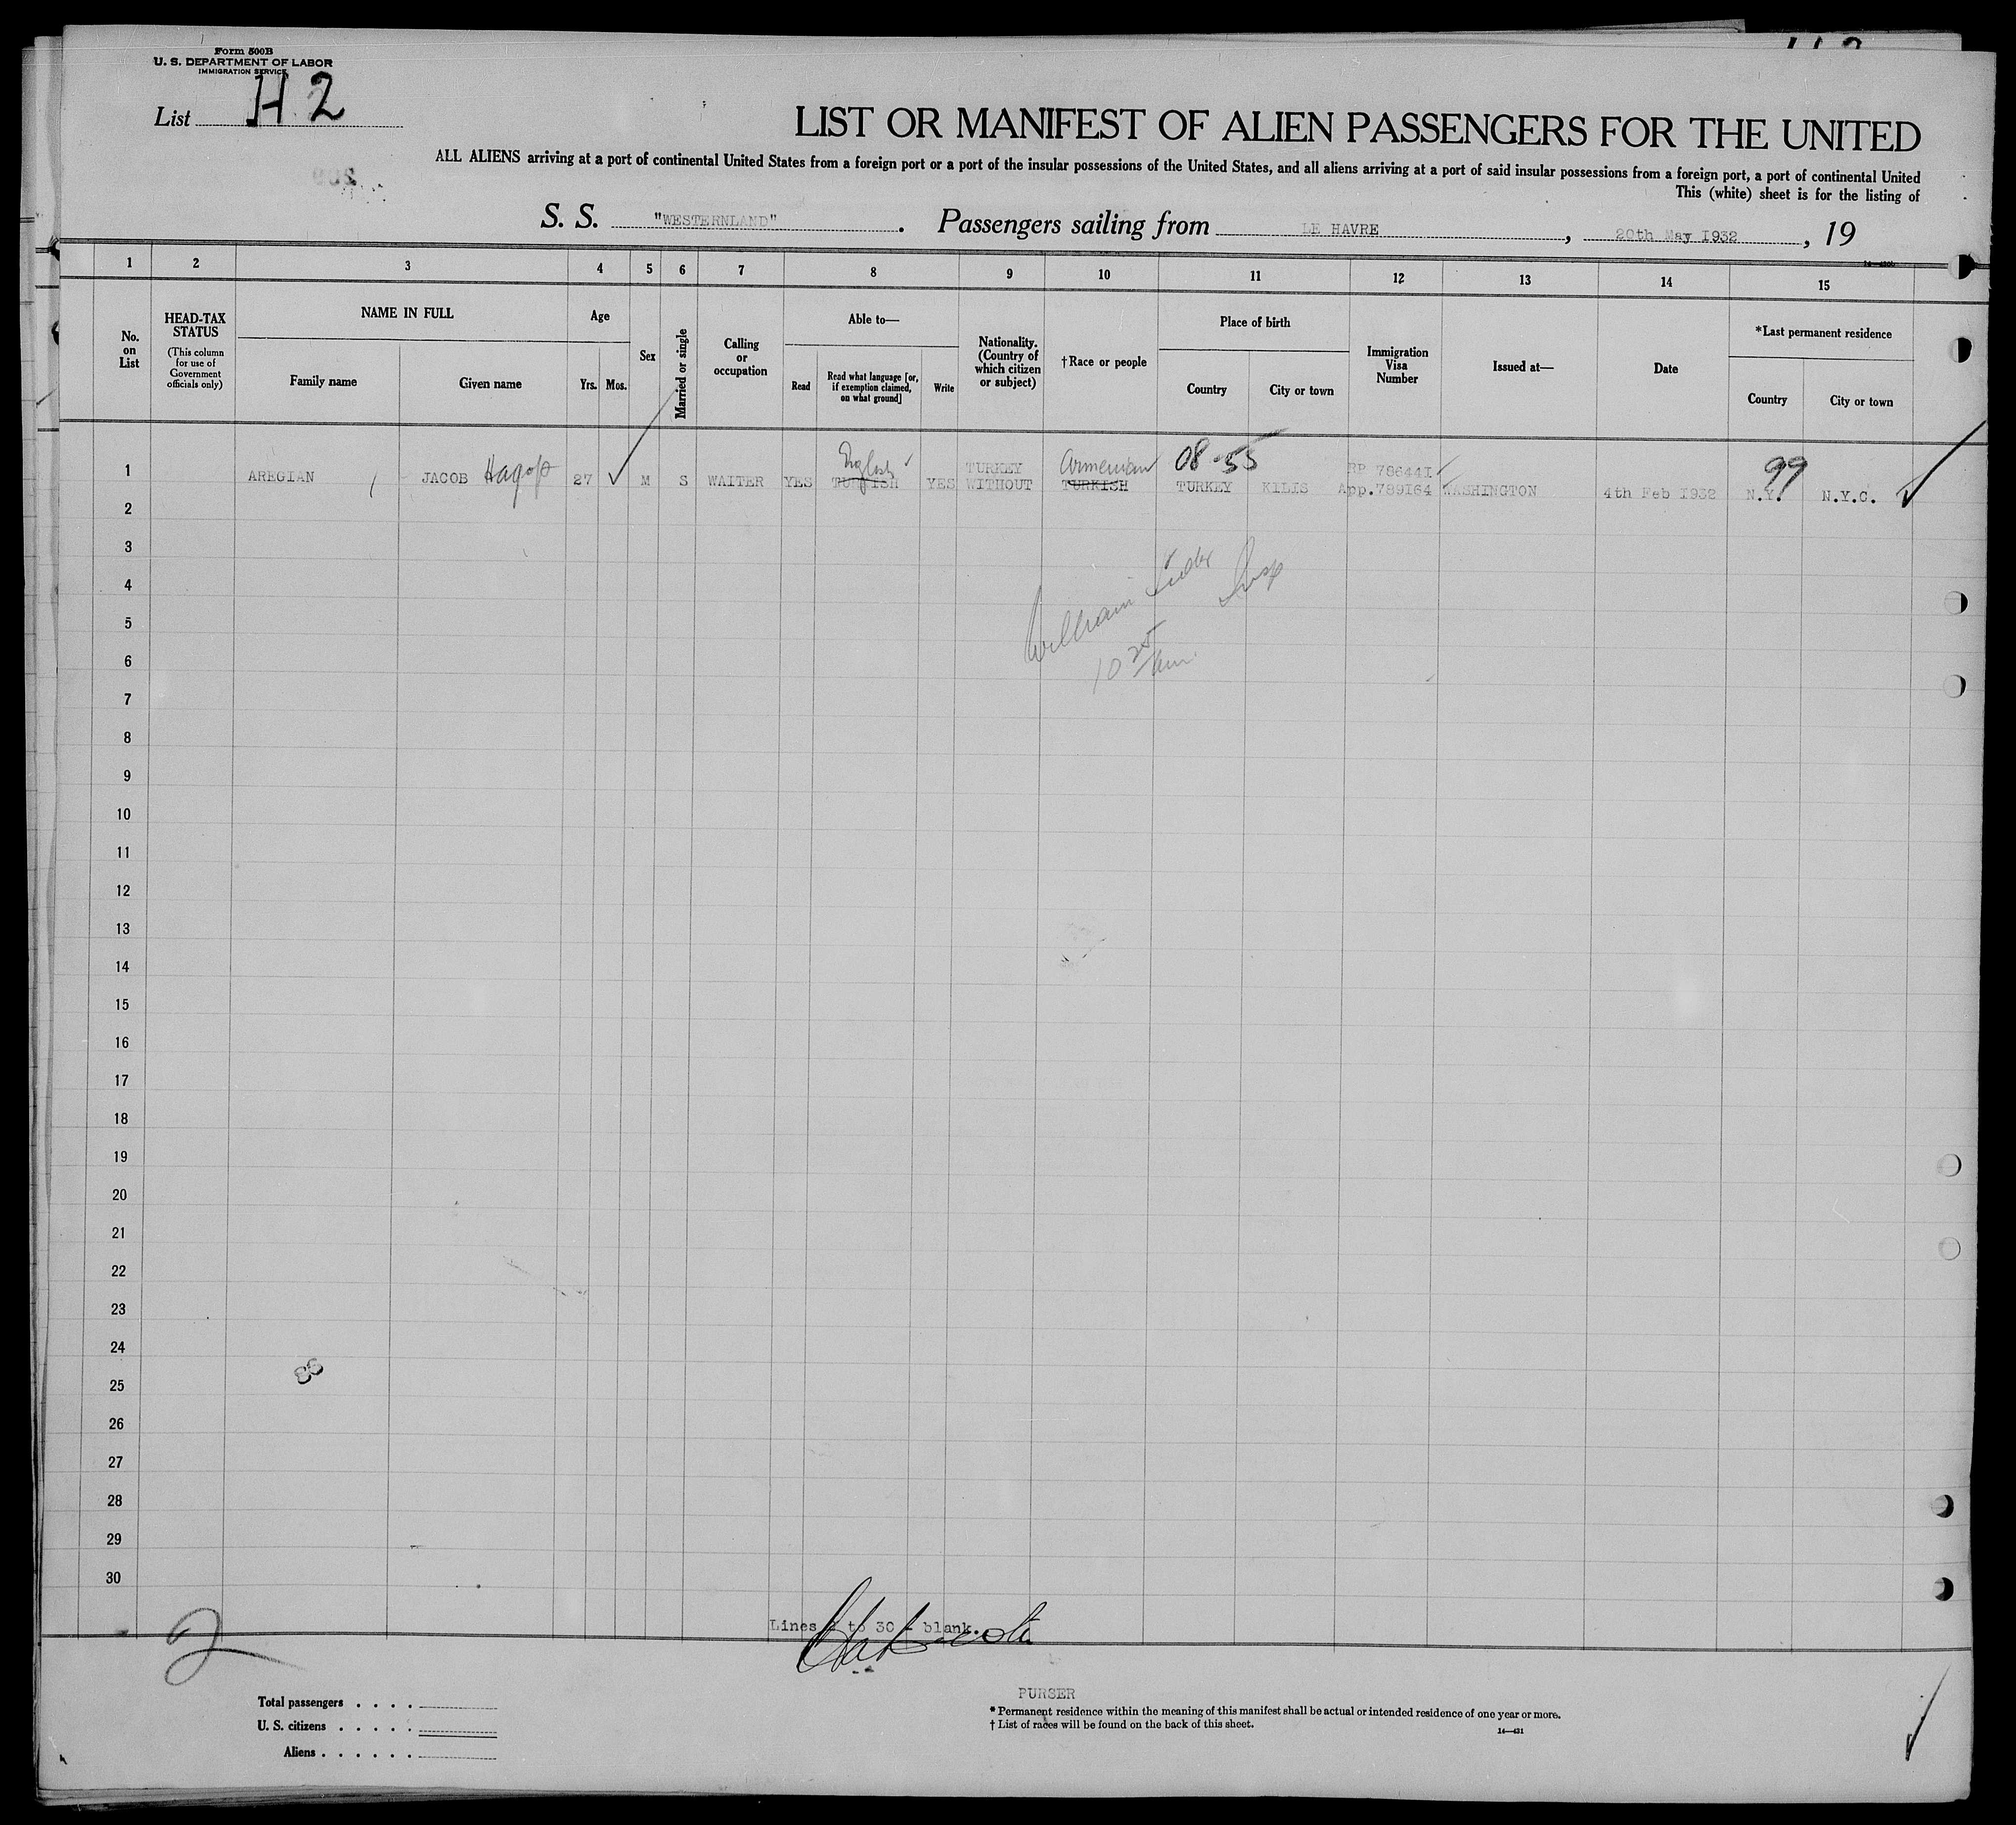 Form 500B
U. S. DEPARTMENT OF LABOR
IMMIGRATION SERVICE
List H 2
LIST OR MANIFEST OF ALIEN PASSENGERS FOR THE UNITED
ALL ALIENS arriving at a port of continental United States from a foreign port or a port of the insular possessions of the United States, and all aliens arriving at a port of said insular possessions from a foreign port, a port of continental United
This (white) sheet is for the listing of
S. S. "WESTERNLAND". Passengers sailing from LE HAVRE, 20th May 1932, 19
1 2 3 4 5 6 7 8 9 10 11 12 13 14 15
No. on List
HEAD-TAX STATUS
(This column for use of Government officials only)
NAME IN FULL
Family name
Given name
Age
Yrs.
Mos.
Sex
Married or single
Calling or occupation
Able to—
Read
Read what language [or, if exemption claimed, on what ground]
Write
Nationality. (Country of which citizen or subject)
†Race or people
Place of birth
Country
City or town
Immigration Visa Number
Issued at—
Date
*Last permanent residence
Country
City or town
English TURKEY Armenian 08-55 RP 786441 99
1 AREGIAN, JACOB Hagop 27 M S WAITER YES TURKISH YES WITHOUT TURKISH TURKEY KILIS App.789164 WASHINGTON 4th Feb 1932 N.Y. N.Y.C.
2
3
William Insp
4
5
6
10 25 Am.
7
8
9
10
11
12
13
14
15
16
17
18
19
20
21
22
23
24
25
26
27
28
29
30
Lines 2 to 30 - blank.
2
PURSER
Total passengers . . . .
U. S. citizens . . . . .
Aliens . . . . . .
* Permanent residence within the meaning of this manifest shall be actual or intended residence of one year or more.
† List of races will be found on the back of this sheet.
14—431